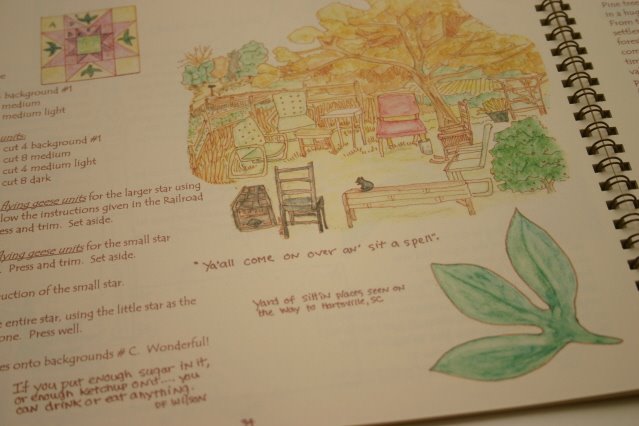 background #1
medium
medium light
units:
cut 4 background #1
cut 8 medium
cut 4 medium light
cut 8 dark
flying geese units for the larger star using
low the instructions given in the Railroad
ess and trim. Set aside.
flying geese units for the small star
. Press and trim. Set aside.
uction of the small star.
e entire star, using the little star as the
one. Press well.
es onto backgrounds # C. Wonderful!
If you put enough sugar in it,
or enough ketchup on it.... you
can drink or eat anything.
DF Wilson
"Ya'all come on over an' sit a spell".
Yard of sittin places seen on
the way to Hartsville, SC
34
Pine tree
in a hug
From t
settle
fores
com
tim